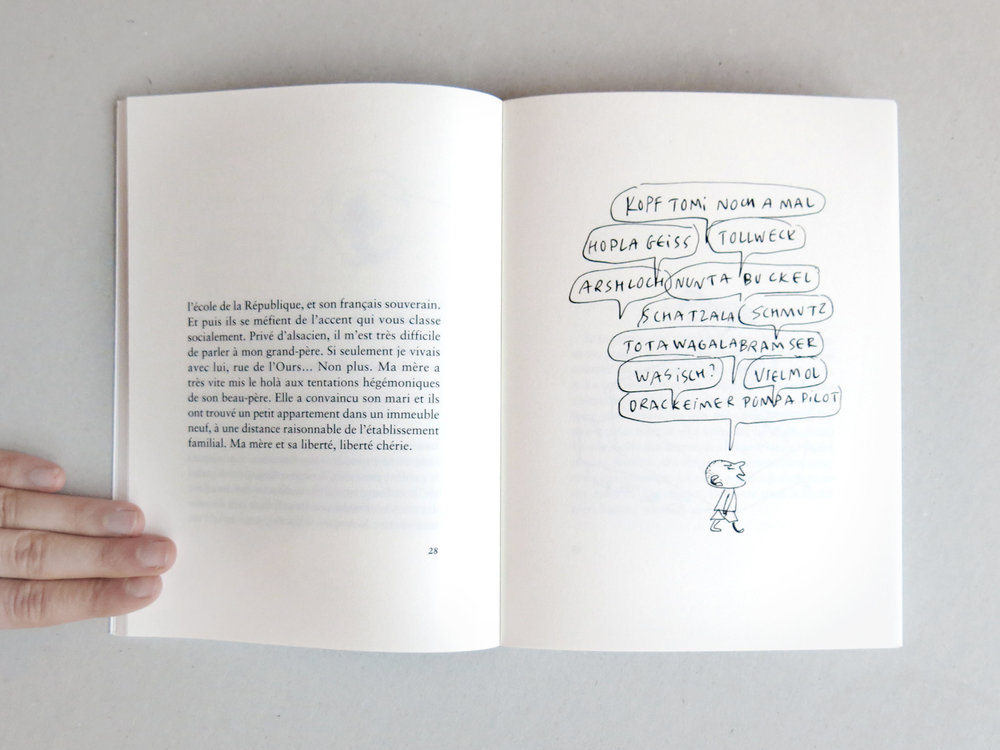 l'école de la République, et son français souverain.
Et puis ils se méfient de l'accent qui vous classe
socialement. Privé d'alsacien, il m'est très difficile
de parler à mon grand-père. Si seulement je vivais
avec lui, rue de l'Ours… Non plus. Ma mère a
très vite mis le holà aux tentations hégémoniques
de son beau-père. Elle a convaincu son mari et ils
ont trouvé un petit appartement dans un immeuble
neuf, à une distance raisonnable de l'établissement
familial. Ma mère et sa liberté, liberté chérie.
28
KOPF TOMI NOCH A MAL
HOPLA GEISS TOLLWECK
ARSHLOCH NUNTA BUCKEL
SCHATZALA SCHMUTZ
TOTAWAGALABRAMSER
WASISCH? VIELMOL
DRACKEIMER POMPA PILOT